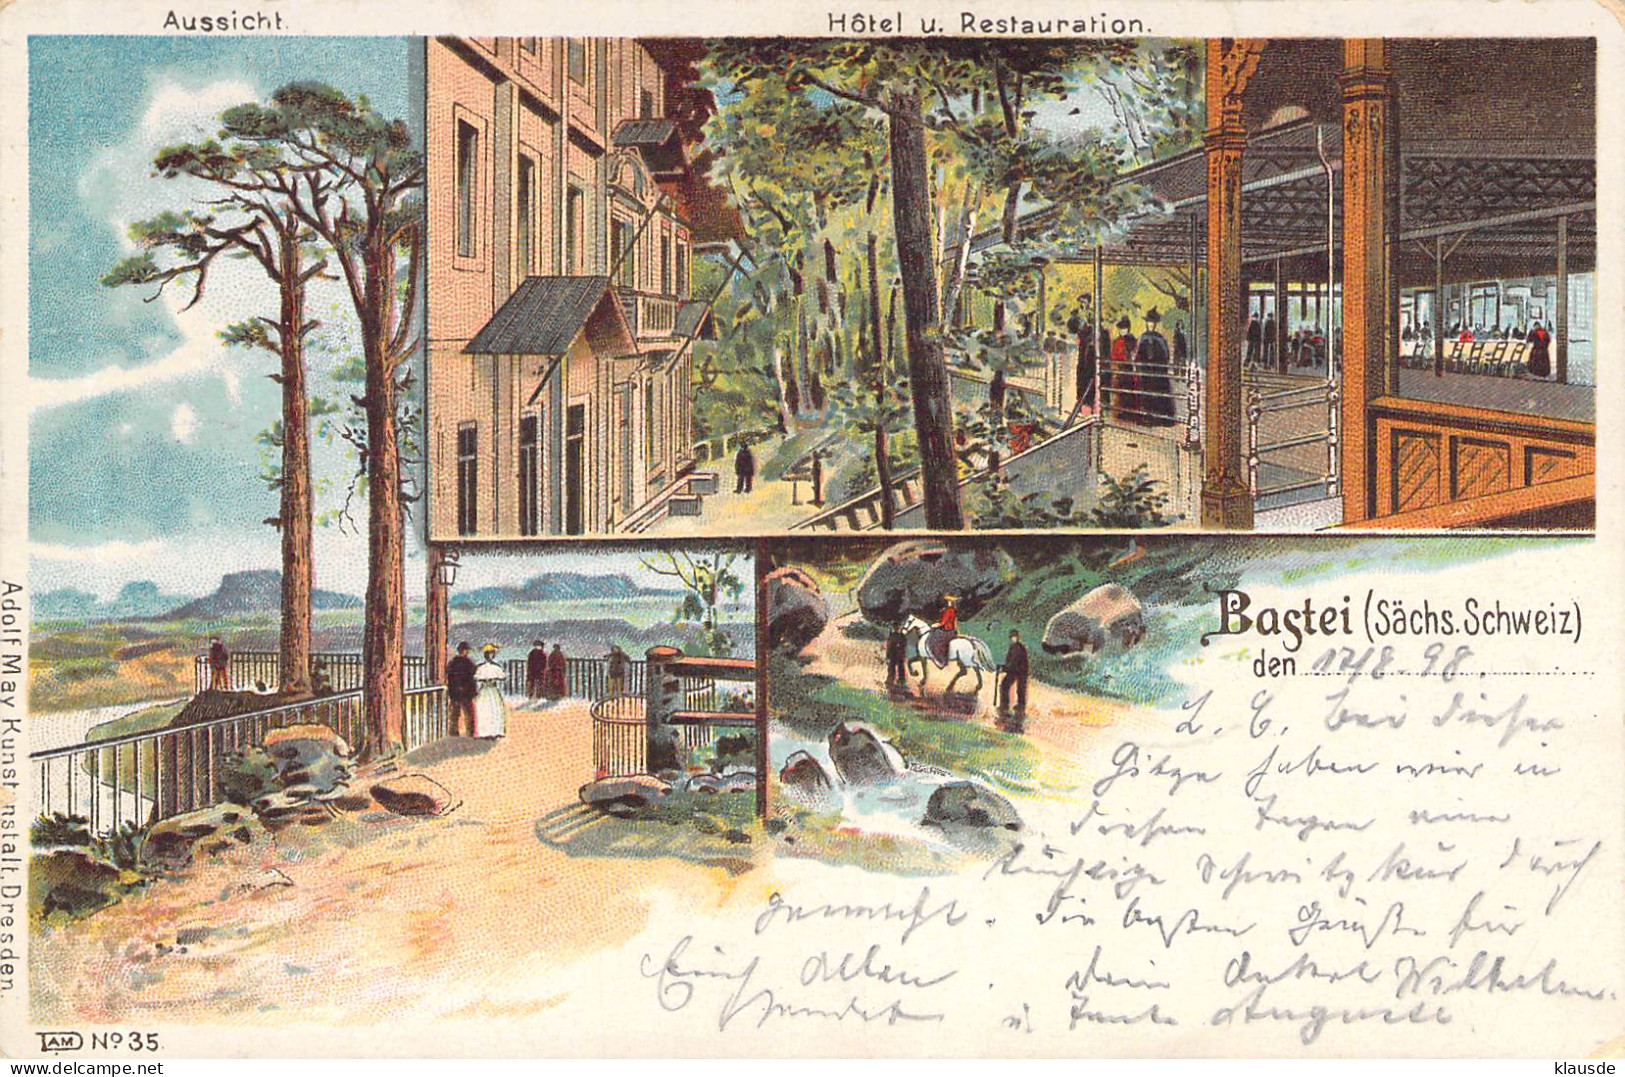 Aussicht.
Hôtel u. Restauration.
Bastei (Sächs. Schweiz)
den 17/8. 98.
L. E. Bei dieser
Hitze haben wir in
diesen Tagen eine
tüchtige Schwitzkur durch
gemacht. Die besten Grüße für
Euch Allen. Dein Onkel Wilhelm
sendet u. Tante Auguste
Adolf May Kunstanstalt, Dresden.
TAM Nº 35.
klausde